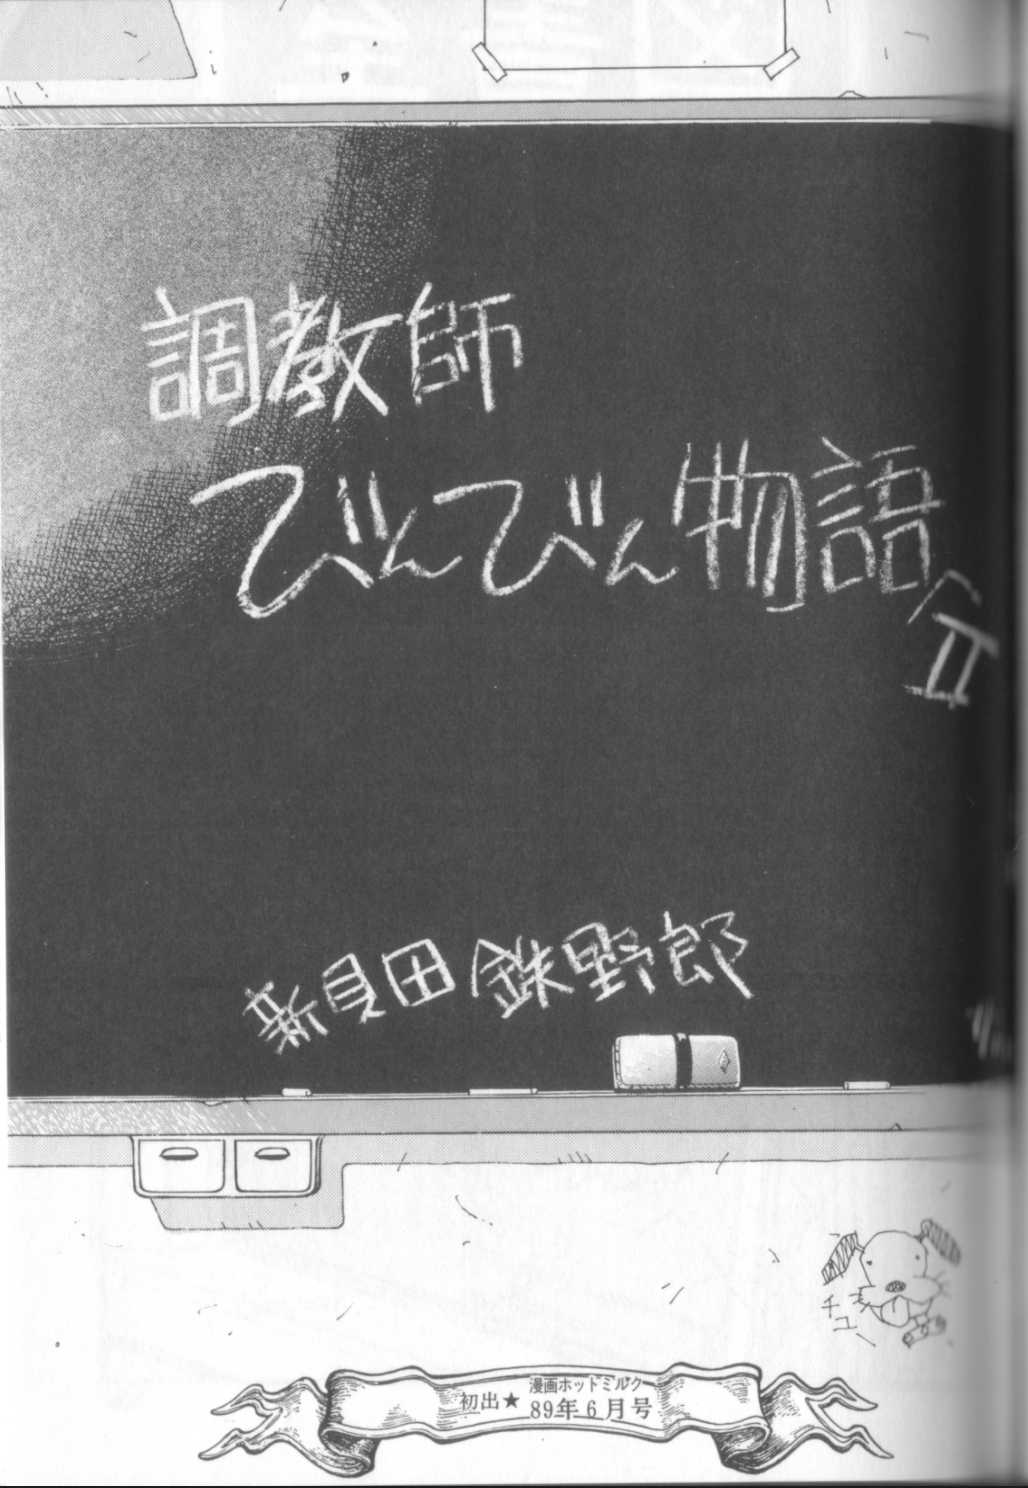 調教師
びんびん物語
II
新貝田鉄野郎
チュー
初出★
漫画ホットミルク
89年6月号